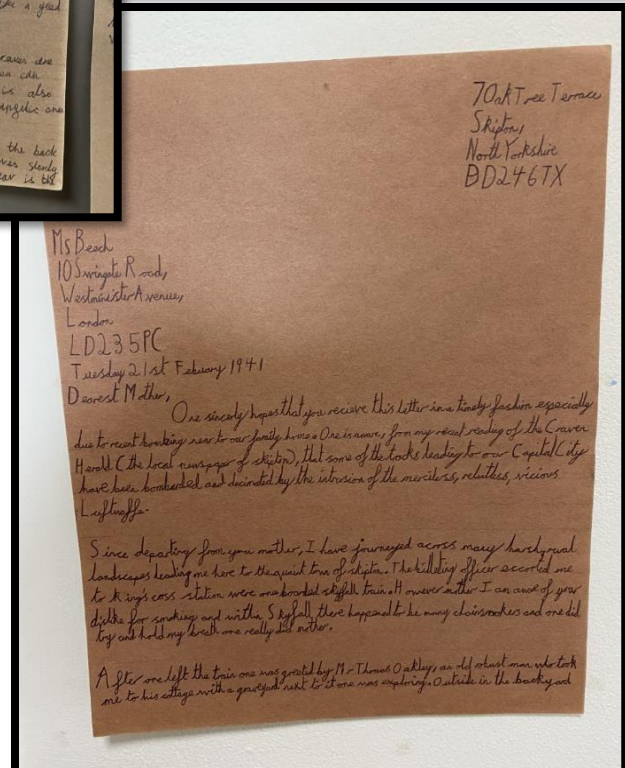 like a good
the back
slowly
is the
7 Oak Tree Terrace
Skipton,
North Yorkshire
BD24 6TX
Ms Beech
10 Swingate Road,
Westminister Avenue,
London
LD23 5PC
Tuesday 21st Febuary 1941
Dearest Mother,
One sincerly hopes that you recieve this letter in a timely fashion especially
due to recent bombing near to our family home. One is aware, from my recent reading of the Craven
Herald (the local newspaper of skipton), that some of the tracks leading to our Capital City
have been bombarded and decimated by the intrusion of the merciless, relentless, vicious
Luftwaffe.
Since departing from you mother, I have journeyed across many harsh, rural
landscapes leading me here to the quaint town of skipton. The billeting officer escorted me
to king's cross station were one boarded skyfall train. However mother I am aware of your
dislike for smoking and within Skyfall there happened to be many chainsmokers and one did
try and hold my breath one really did mother.
After one left the train one was greeted by Mr Thomas Oakley, an old robust man who took
me to his cottage with a graveyard next to it one was exploring. Outside in the backyard